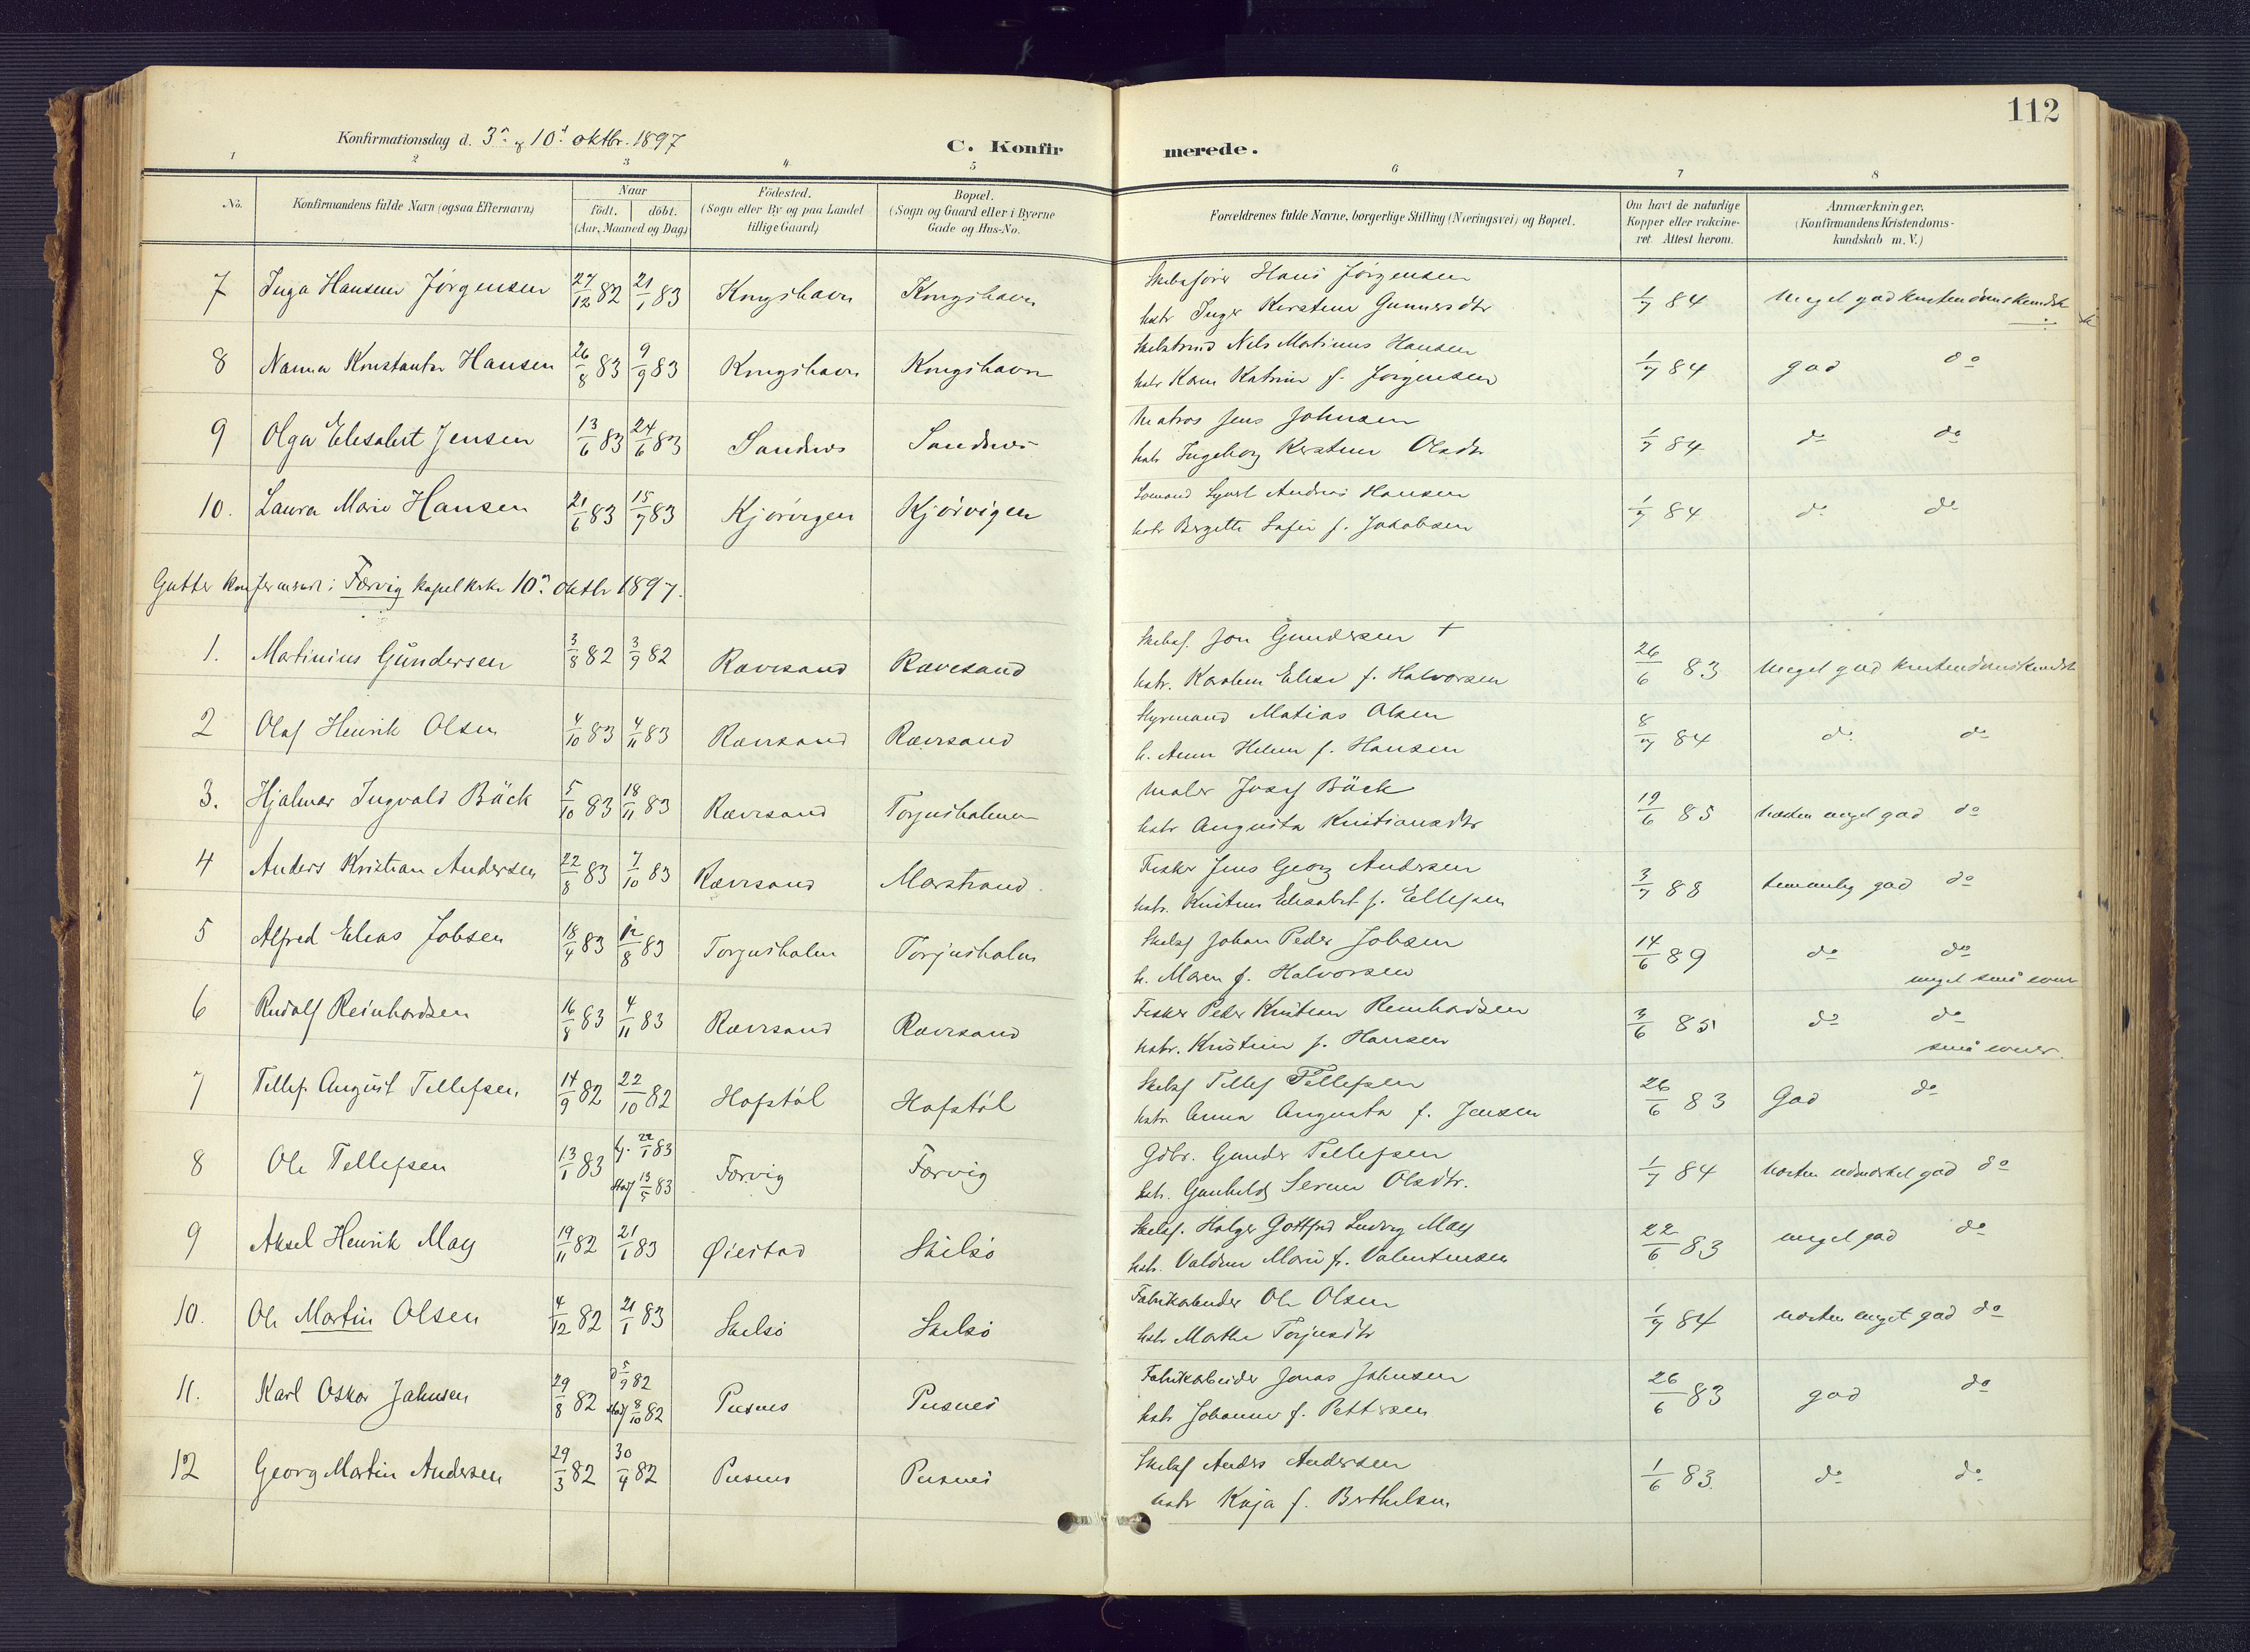 112
Konfirmationsdag d. 3die og 10de oktbr. 1897
C. Konfirmerede.
1 2 3 4 5 6 7 8
No. Konfirmandens fulde Navn (ogsaa Efternavn) Naar födt. döbt. (Aar, Maaned og Dag) Födested. (Sogn eller By og paa Landet tillige Gaard) Bopæl. (Sogn og Gaard eller i Byerne Gade og Hus-No. Forældrenes fulde Navne, borgerlige Stilling (Næringsvei) og Bopæl. Om havt de naturlige Kopper eller vakcineret. Attest herom. Anmærkninger. (Konfirmandens Kristendomskundskab m. V.)
7 Inga Hansine Jörgensen 27/12 82 21/1 83 Kongshavn Kongshavn Skibsförer Hans Jörgensen 1/7 84 Meget god kristendomskundsk
hstr Inger Kirstine Gunnersdtr
8 Nanna Konstantia Hansen 26/8 83 9/9 83 Kongshavn Kongshavn Nils Martinius Hansen 1/7 84 god do
hstr Karen Katrine f. Jörgensen
9 Olga Elisabet Jensen 13/6 83 24/6 83 Sandnes Sandnes Matros Jens Johnsen 1/7 84 do do
hstr Ingeborg Kirstine Olsdtr
10. Laura Marie Hansen 21/6 83 15/7 83 Kjörvigen Kjörvigen Andreas Hansen 1/7 84 do do
hstr Birgitte Sofie f. Jakobsen
Gutter konfirmeret i Færvig kapelkirke 10de Oktbr 1897.
1. Martinius Gundersen 3/8 82 3/9 82 Rævesand Rævesand Skibsf. Jon Gundersen † 26/6 83 Meget god kristendomskundsk
hstr. Karoline Elise f. Halvorsen
2 Olaf Henrik Olsen 4/10 83 4/11 83 Rævesand Rævesand Styrmand Matias Olsen 8/7 84 do do
h. Anne Helene f. Hansen
3. Hjalmar Ingvald Bäck 5/10 83 18/11 83 Rævesand Torjusholmen Maler Josef Bäck 19/6 85 næsten meget god do
hstr Augusta Kristiansdtr
4 Anders Kristian Andersen 22/8 83 7/10 83 Rævesand Marstrand Fisker Jens Georg Andersen 3/7 88 temmelig god do
hstr. Kristine Elisabet f. Ellefsen
5 Alfred Elias Jobsen 18/4 83 12/8 83 Torjusholm Torjusholm Skibsf Johan Peder Jobsen 14/6 89 do do
h. Maren f. Halvorsen meget små evner
6 Rudolf Reinhardsen 16/8 83 4/11 83 Rævesand Rævesand Fisker Peder Kristian Reinhardsen 3/6 85 do do
hstr. Kristine f. Hansen små evner.
7 Tellef August Tellefsen 14/9 82 22/10 82 Hopstöl Hofstöl Skibsf Tellef Tellefsen 26/6 83 God do
hstr Anna Augusta f. Jensen
8 Ole Tellefsen 13/1 83 hj. 22/1 83 Stadf 13/5 83 Færvig Færvig Gdbr. Gunder Tellefsen 1/7 84 næsten udmærket god do
hstr. Gunhild Serine Olsdtr.
9 Aksel Henrik May 19/11 82 21/1 83 Øiestad Skilsö Skibsf. Holger Gottfred Ludvig May 22/6 83 meget god do
hstr. Valdine Marie f. Valentinsen
10. Ole Martin Olsen 4/12 82 21/1 83 Skilsö Skilsö Fabrikarbeider Ole Olsen 1/7 84 næsten meget god do
hstr Marthe Torjusdtr
11. Karl Oskar Johnsen 29/8 82 5/9 82 Stadf 8/10 82 Pusnes Pusnes Fabrikarbeider Jonas Johnsen 26/6 83 god do
hstr Johanne f. Pettersen
12 Georg Martin Andersen 29/3 82 30/4 82 Pusnes Pusnes Skibsf Anders Andersen 1/6 83 do do
hstr Kaja f. Berthelsen